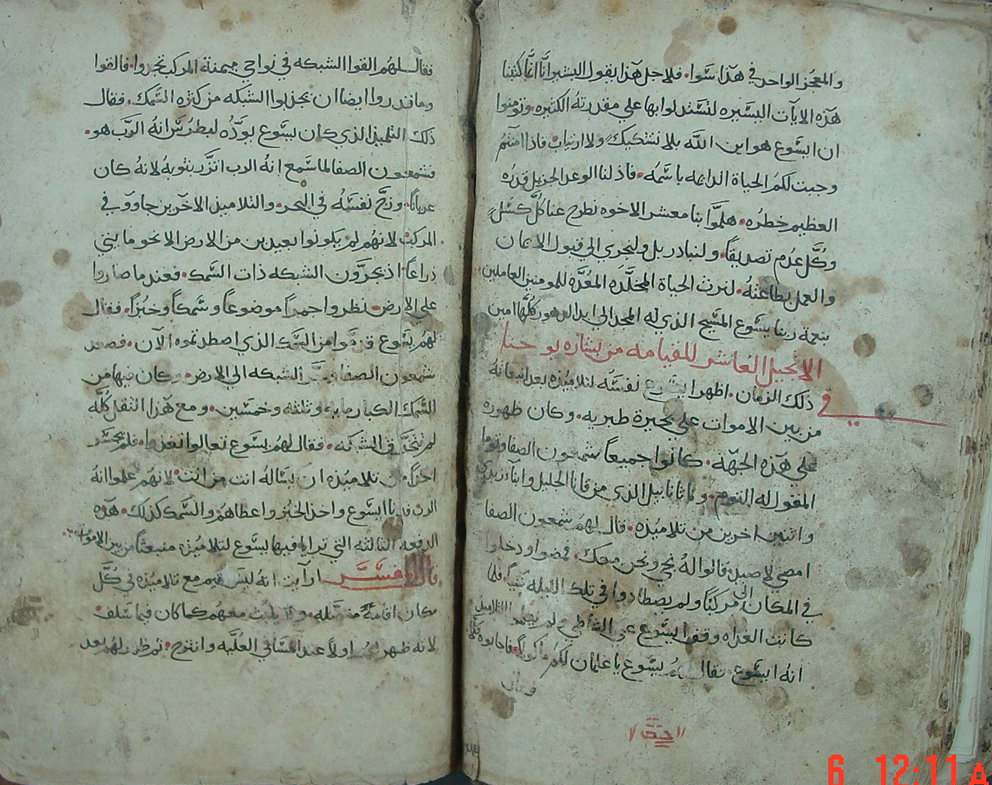 والمعجز الواحد في هذا سوا. فلاجل هذا يقول البشير انّا انما كتبنا
هذه الايات اليسيره لنستدلوا بها على مقدرته الكثيره وتومنوا
ان ايسوع هو ابن الله بلا تشكيك ولا ارتياب فاذا امنتم
وجبت لكم الحياة الدايمه باسمه. فاذ لنا الوعد الجزيل قدره
العظيم خطره. هلموا بنا معشر الاخوه نطرح عنا كل كسل
وكل عدم تصديقاً. ولنبادر بل ولنجري الى قبول الايمان
والعمل بطاعته. لنرث الحياة المخلده المعده للمومنين العاملين
بنعمة ربنا يسوع المسيح الذي له المجد الى ابد الدهور كلها امين
الانجيل العاشر للقيامه من بشاره يوحنا
في ذلك الزمان. اظهر ايسوع نفسه لتلاميذه بعد انبعاثه
من بين الاموات على بحيرة طبريه. وكان ظهوره
على هذه الجهة. كانوا جميعاً شمعون الصفا وتوما
المقول له التوم. وناثاناييل الذي من قانا الجليل وابنا زبدي
واثنين اخرين من تلاميذه. قال لهم شمعون الصفا
امضي لاصيد قالوا له نجي ونحن معك. فمضوا ودخلوا
في المكان الى مركباً ولم يصطادوا في تلك الليله شياً فلما
كانت الغداه وقف ايسوع على الشاطي ولم يعلم التلاميذ
انه ايسوع فقال لهم يسوع يا غلمان لكم فاجابوه كلا
وقال
فقال لهم القوا الشبكه في نواحي ميمنة المركب تجدوا. فالقوا
وما قدروا ايضا ان يجذبوا الشبكه من كثرة السمك. فقال
ذلك التلميذ الذي كان يسوع يودّه لبطرس انه الرب هو.
فشمعون الصفا لما سمع انه الرب اتزر بثوبه لانه كان
عرياناً. وزجّ نفسه في البحر. والتلاميذ الاخرين جاوو في
المركب لانهم لم يكونوا بعيدين من الارض الا نحو مايتي
ذراعاً. اذ يجرّون الشبكه ذات السمك. فعندما صاروا
على الارض. نظروا جمراً موضوعاً وسمكاً وخبزاً. فقال
لهم يسوع قدموا من السمك الذي اصطدتموه الان. فصعد
شمعون الصفا الشبكه الى الارض. وكان فيها من
السمك الكبار مايه وثلثه وخمسين. ومع هذا الثقل كلّه
لم تنخرق الشبكه. فقال لهم يسوع تعالوا تغدوا. فلم يجسر
احداً من تلاميذه ان يساله انت من انت لانهم علموا انه
الرب فدنا ايسوع واخذ الخبز واعطاهم والسمك كذلك. هذه
الدفعه الثالثه التي ترايا فيها يسوع لتلاميذه منبعثاً من بين الاموات
قال المفسر ارايت انه ليس مقيم مع تلاميذه في كل
مكان اقامةً متصله. ولا يلبث معهم كما كان فيما سلف.
لانه ظهر لهم اولاً عند المسا في العليه وانتزح. ثم ظهر لهم بعد
6 12:11 A